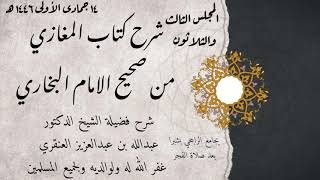 ١٤ جمادى الأولى ١٤٤٦ هـ
المجلس الثالث
والثلاثون
شرح كتاب المغازي
من صحيح الامام البخاري
شرح فضيلة الشيخ الدكتور
عبدالله بن عبدالعزيز العنقري
غفر الله له ولوالديه ولجميع المسلمين
بجامع الراجحي بشبرا
بعد صلاة الفجر